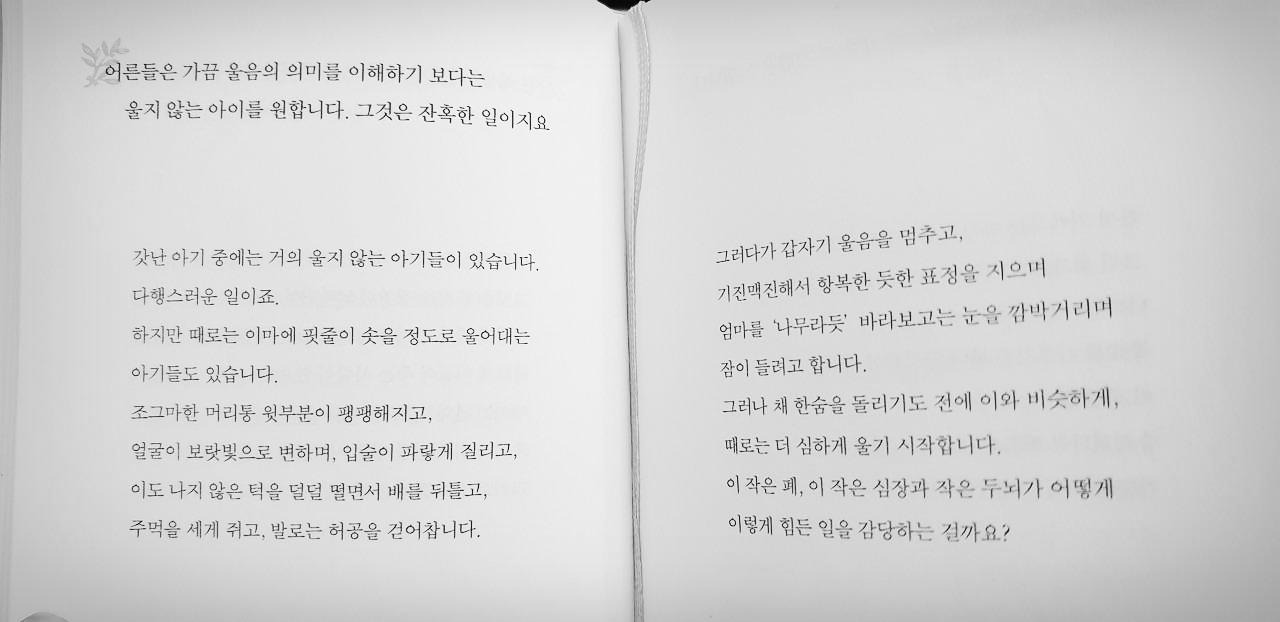 어른들은 가끔 울음의 의미를 이해하기 보다는
울지 않는 아이를 원합니다. 그것은 잔혹한 일이지요
갓난 아기 중에는 거의 울지 않는 아기들이 있습니다.
다행스러운 일이죠.
하지만 때로는 이마에 핏줄이 솟을 정도로 울어대는
아기들도 있습니다.
조그마한 머리통 윗부분이 팽팽해지고,
얼굴이 보랏빛으로 변하며, 입술이 파랗게 질리고,
이도 나지 않은 턱을 덜덜 떨면서 배를 뒤틀고,
주먹을 세게 쥐고, 발로는 허공을 걷어찹니다.
그러다가 갑자기 울음을 멈추고,
기진맥진해서 항복한 듯한 표정을 지으며
엄마를 ‘나무라듯’ 바라보고는 눈을 깜박거리며
잠이 들려고 합니다.
그러나 채 한숨을 돌리기도 전에 이와 비슷하게,
때로는 더 심하게 울기 시작합니다.
이 작은 폐, 이 작은 심장과 작은 두뇌가 어떻게
이렇게 힘든 일을 감당하는 걸까요?